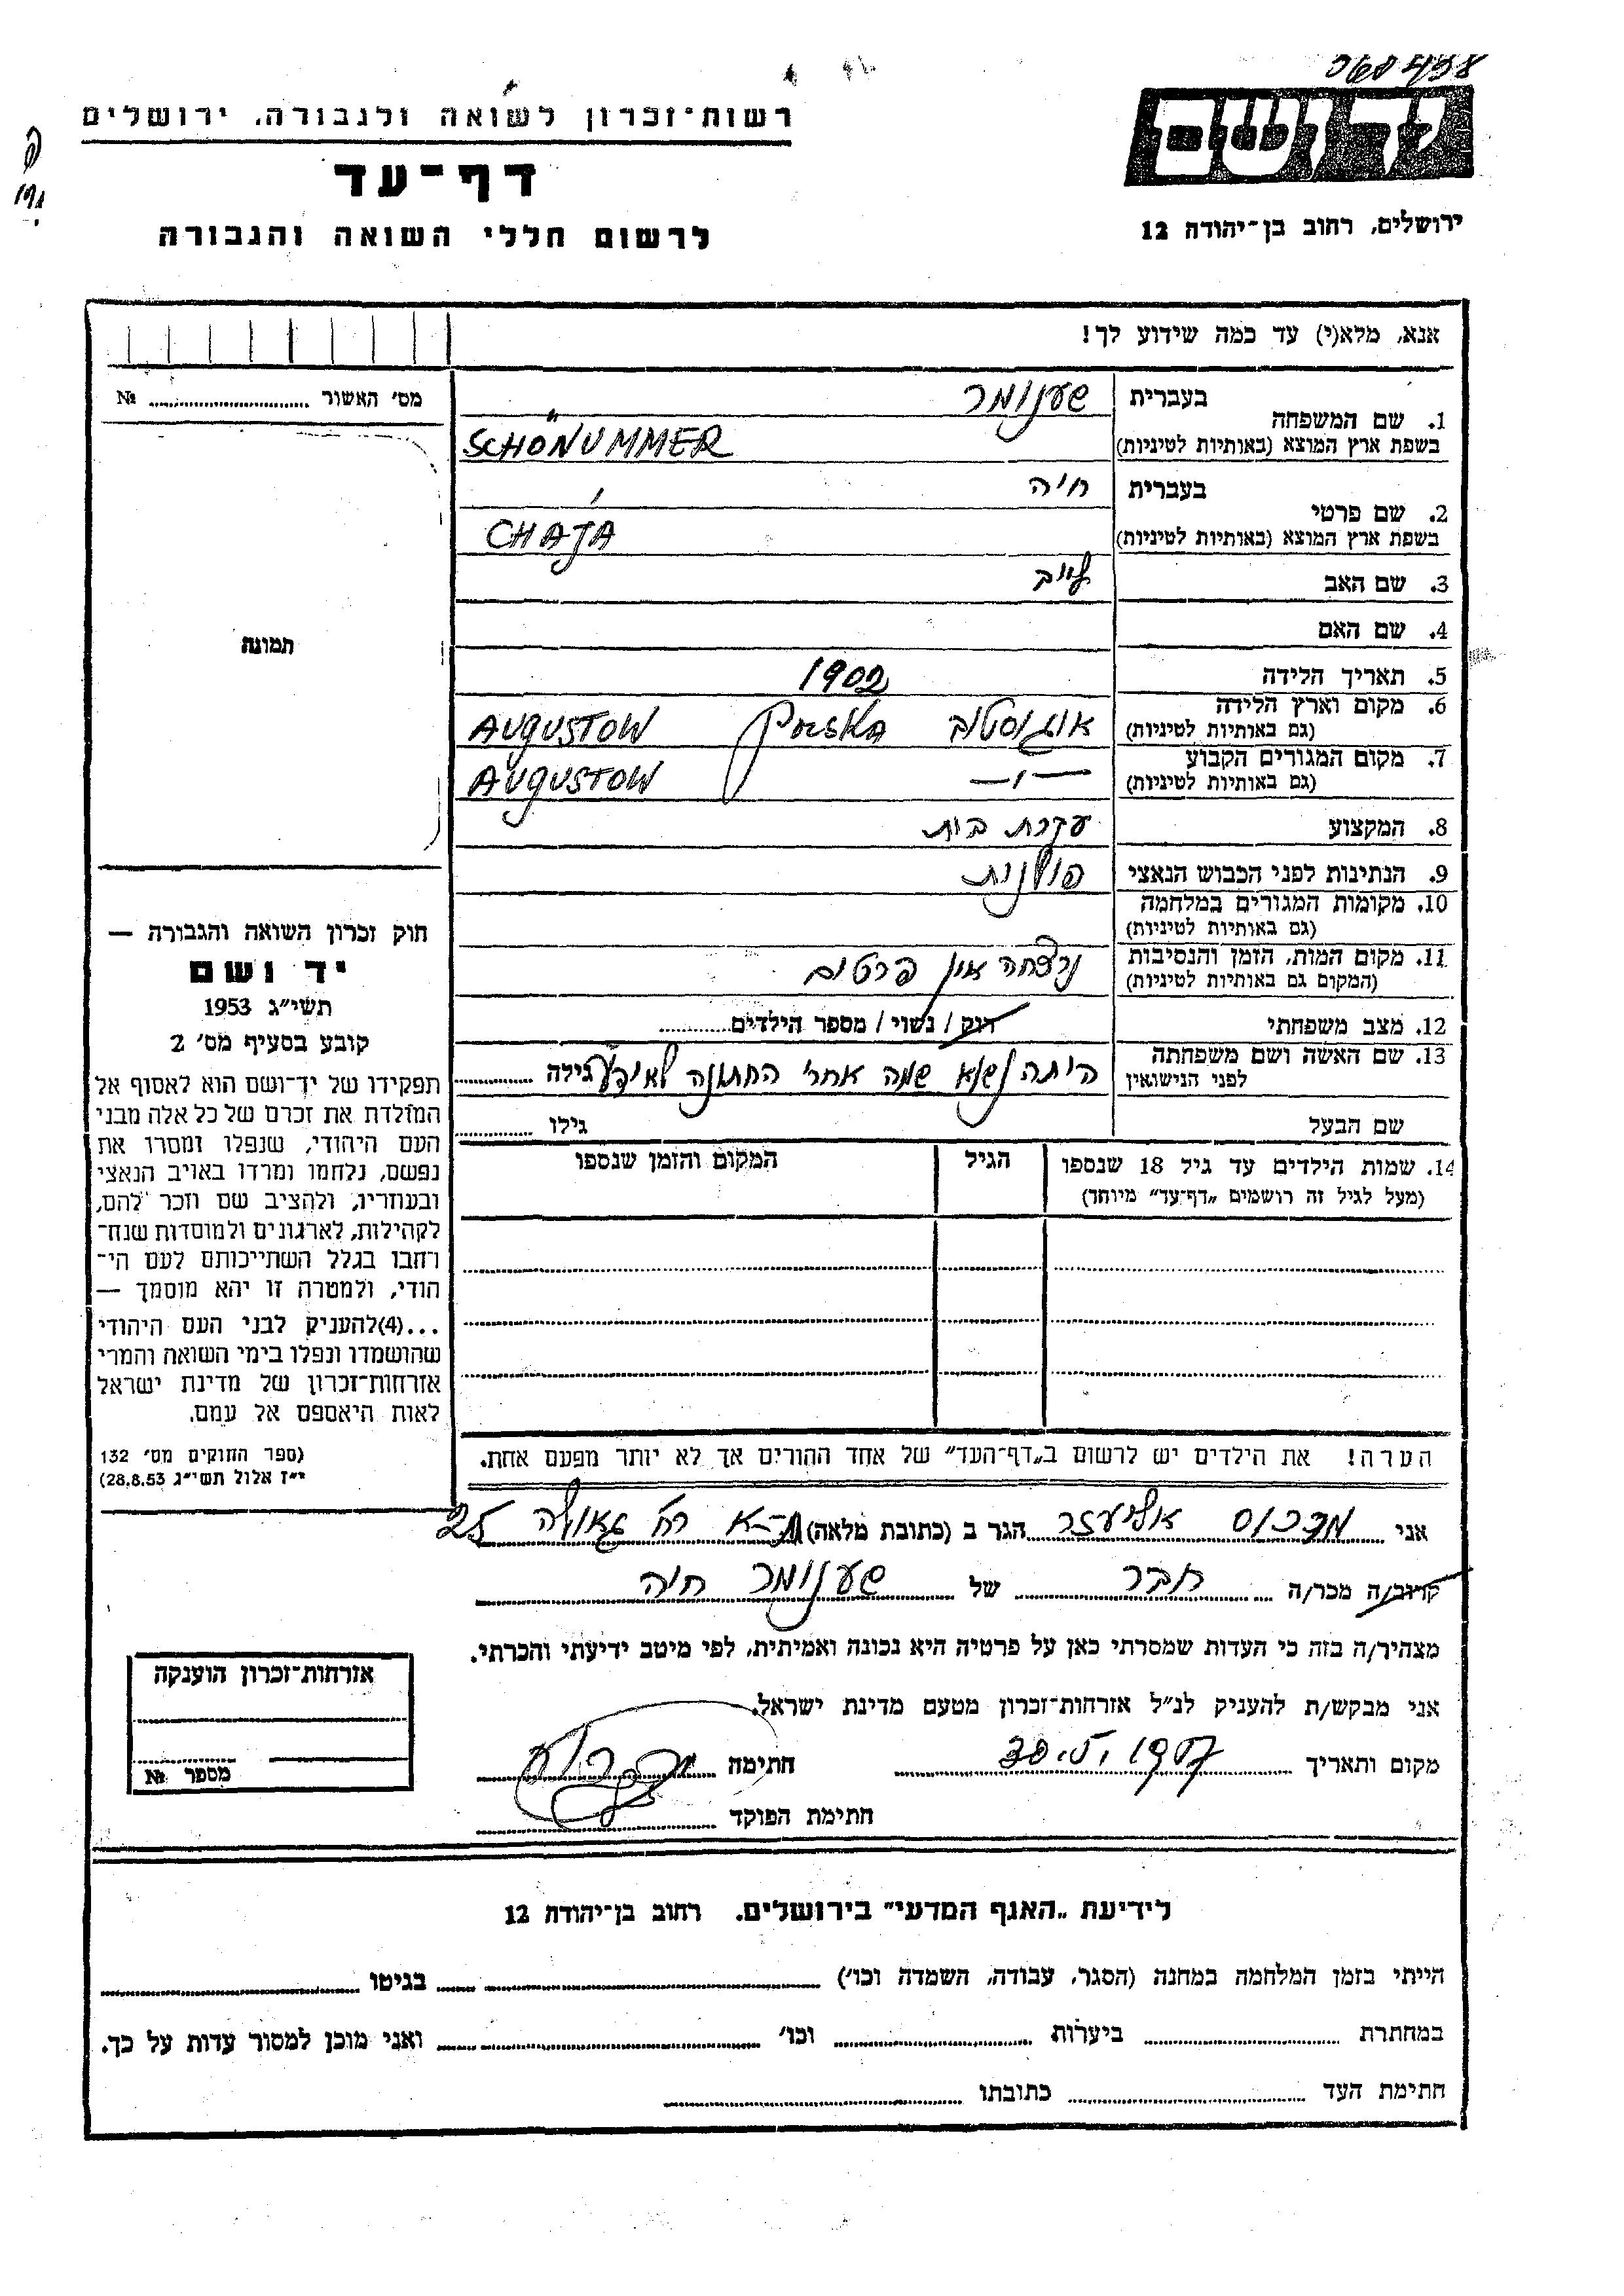 060498
רשות־זכרון לשואה ולגבורה, ירושלים
יד ושם
דף־עד
ירושלים, רחוב בן־יהודה 12
לרשום חללי השואה והגבורה
אנא, מלא(י) עד כמה שידוע לך!
מס׳ האשור ........ №
תמונה
1. שם המשפחה
בעברית שענומר
בשפת ארץ המוצא (באותיות לטיניות) SCHÖNUMMER
2. שם פרטי
בעברית חיה
בשפת ארץ המוצא (באותיות לטיניות) CHAJA
3. שם האב לייב
4. שם האם
5. תאריך הלידה 1902
6. מקום וארץ הלידה אוגוסטוב Polska AUGUSTOW
(גם באותיות לטיניות)
7. מקום המגורים הקבוע —ו— AUGUSTOW
(גם באותיות לטיניות)
8. המקצוע עקרת בית
9. הנתינות לפני הכבוש הנאצי פולנית
10. מקומות המגורים במלחמה
(גם באותיות לטיניות)
11. מקום המות, הזמן והנסיבות נרצחה אין פרטים
(המקום גם באותיות לטיניות)
12. מצב משפחתי רוק / נשוי / מספר הילדים........
13. שם האשה ושם משפחתה היתה נשוא שמה אחרי החתונה לא ידוע גילה ........
לפני הנישואין
שם הבעל גילו ........
14. שמות הילדים עד גיל 18 שנספו הגיל המקום והזמן שנספו
(מעל לגיל זה רושמים „דף־עד" מיוחד)
חוק זכרון השואה והגבורה —
יד ושם
תשי״ג 1953
קובע בסעיף מס׳ 2
תפקידו של יד־ושם הוא לאסוף אל
המולדת את זכרם של כל אלה מבני
העם היהודי, שנפלו ומסרו את
נפשם, נלחמו ומרדו באויב הנאצי
ובעוזריו, ולהציב שם וזכר להם,
לקהילות, לארגונים ולמוסדות שנח־
רחבו בגלל השתייכותם לעם הי־
הודי, ולמטרה זו יהא מוסמך —
...(4)להעניק לבני העם היהודי
שהושמדו ונפלו בימי השואה והמרי
אזרחות־זכרון של מדינת ישראל
לאות היאספם אל עמם.
(ספר החוקים מס׳ 132
י״ז אלול תשי״ג 28.8.53)
הערה! את הילדים יש לרשום ב„דף־העד" של אחד ההורים אך לא יותר מפעם אחת.
אני מרכוס אליעזר הגר ב (כתובת מלאה) ת–א רח׳ גאולה 25
קרוב/ה מכר/ה חבר של שענומר חיה
מצהיר/ה בזה כי העדות שמסרתי כאן על פרטיה היא נכונה ואמיתית, לפי מיטב ידיעתי והכרתי.
אני מבקש/ת להעניק לנ״ל אזרחות־זכרון מטעם מדינת ישראל.
מקום ותאריך 30.5.1957 חתימה
חתימת הפוקד
אזרחות־זכרון הוענקה
מספר №
לידיעת „האגף המדעי" בירושלים. רחוב בן־יהודה 12
הייתי בזמן המלחמה במחנה (הסגר, עבודה, השמדה וכו׳) ........ בגיטו ........
במחתרת ........ ביערות ........ וכו׳ ........ ואני מוכן למסור עדות על כך.
חתימת העד ........ כתובתו ........